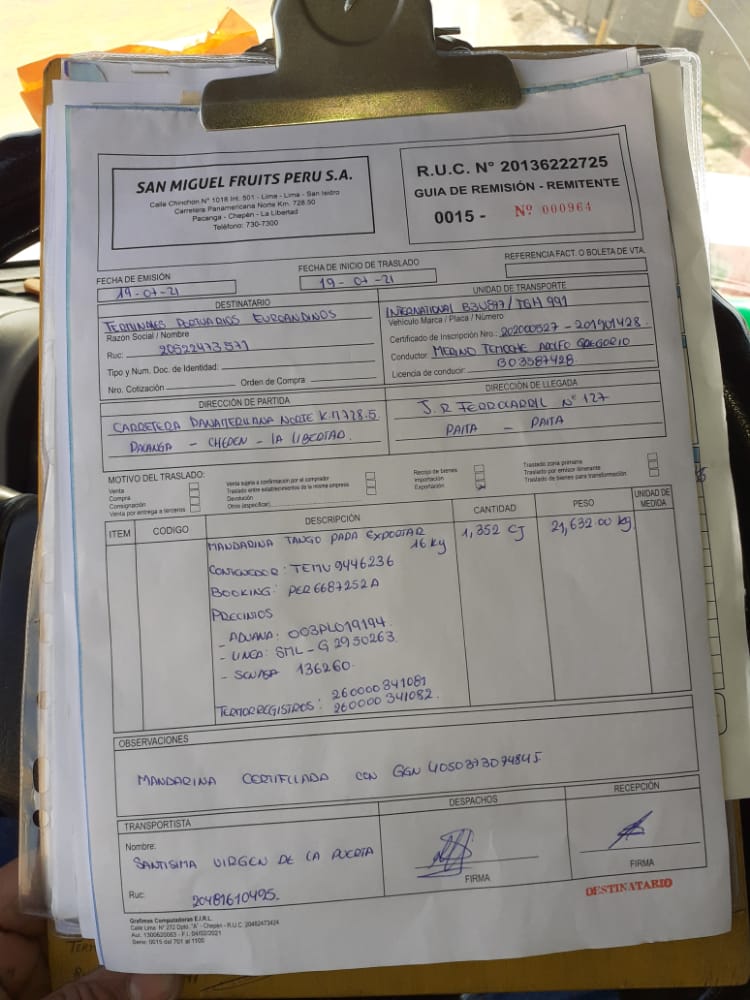 SAN MIGUEL FRUITS PERU S.A.
Calle Chinchon N° 1018 Int. 501 - Lima - Lima - San Isidro
Carretera Panamericana Norte Km. 728.50
Pacanga - Chepén - La Libertad
Teléfono: 730-7300
R.U.C. N° 20136222725
GUIA DE REMISIÓN - REMITENTE
0015 - Nº 000964
FECHA DE EMISIÓN
19-07-21
FECHA DE INICIO DE TRASLADO
19-07-21
REFERENCIA FACT. O BOLETA DE VTA.
DESTINATARIO
TERMINALES PORTUARIOS EUROANDINOS
Razón Social / Nombre
Ruc: 20522473571
Tipo y Num. Doc. de Identidad:
Nro. Cotización Orden de Compra
UNIDAD DE TRANSPORTE
INTERNATIONAL B3U897 / TGH 991
Vehículo Marca / Placa / Número
Certificado de Inscripción Nro.:
Conductor: MERINO TEMOCHE ADOLFO GREGORIO
Licencia de conducir: B03387428
DIRECCIÓN DE PARTIDA
CARRETERA PANAMERICANA NORTE K.M 728.5
PACANGA - CHEPEN - LA LIBERTAD
DIRECCIÓN DE LLEGADA
J.R FERROCARRIL N° 127
PAITA - PAITA
MOTIVO DEL TRASLADO:
Venta
Compra
Consignación
Venta por entrega a terceros
Venta sujeta a confirmación por el comprador
Traslado entre establecimientos de la misma empresa
Devolución
Otros (especificar)
Recojo de bienes
Importación
Exportación
Traslado zona primaria
Traslado por emisor itinerante
Traslado de bienes para transformación
ITEM CODIGO DESCRIPCIÓN CANTIDAD PESO UNIDAD DE MEDIDA
MANDARINA TANGO PARA EXPORTAR 1,352 CJ 21,632.00 kg
16 kg
CONTENEDOR: TEMU 9446236
BOOKING: PER6687252A
PRECINTOS
- ADUANA: 003PL019194
- LINEA: SML-G2950263
- SENASA 136260
TERMORREGISTROS: 260000341081
260000341082.
OBSERVACIONES
MANDARINA CERTIFICADA CON GGN 4050373094845
TRANSPORTISTA
Nombre:
SANTISIMA VIRGEN DE LA PUERTA
Ruc: 20481610495.
DESPACHOS
FIRMA
RECEPCIÓN
FIRMA
DESTINATARIO
Grafimas Computadoras E.I.R.L.
Calle Lima N° 272 Dpto. "A" - Chepén - R.U.C. 20482473424
Serie: 0015 del 701 al 1100